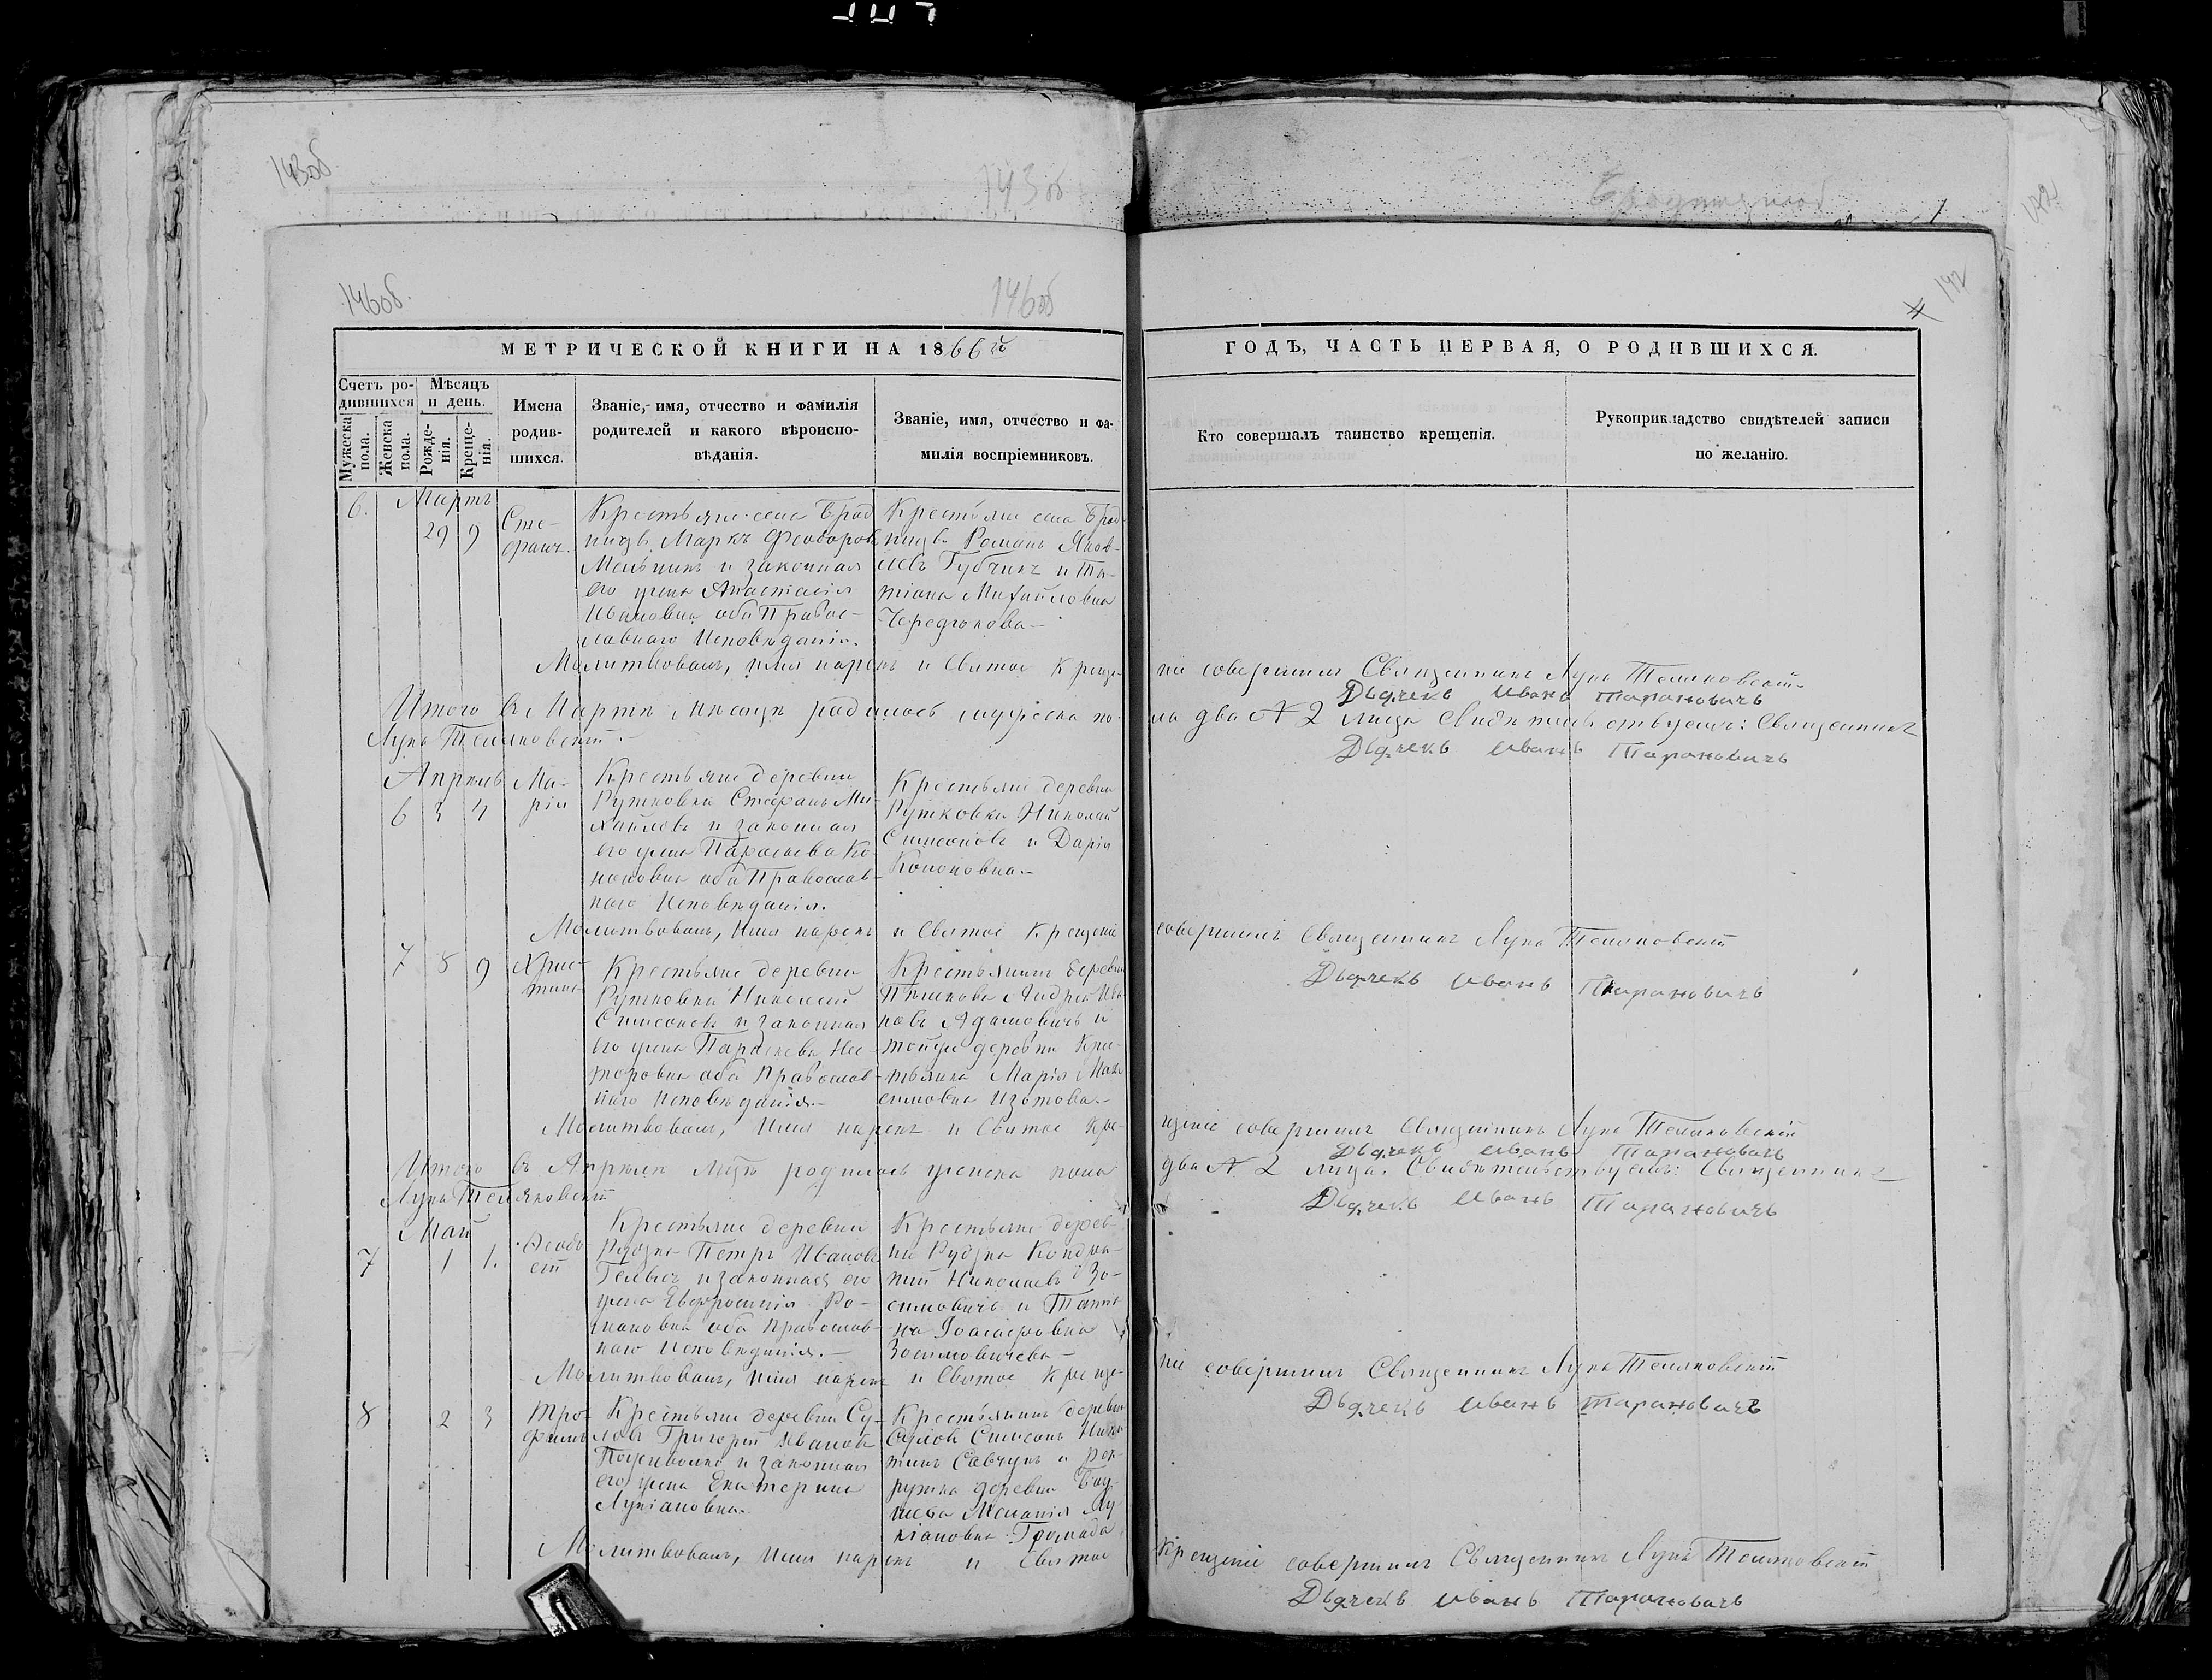 143об
143об
146об.
146об
142
МЕТРИЧЕСКОЙ КНИГИ НА 1866й
ГОДЪ, ЧАСТЬ ПЕРВАЯ, О РОДИВШИХСЯ.
Счетъ ро-
дившихся
Мужеска пола.
Женска пола.
Мѣсяцъ
и день.
Рожде-
нія.
Креще-
нія.
Имена
родив-
шихся.
Званіе, имя, отчество и фамилія
родителей и какого вѣроиспо-
вѣданія.
Званіе, имя, отчество и фа-
милія воспріемниковъ.
Кто совершалъ таинство крещенія.
Рукоприкладство свидѣтелей записи
по желанію.
6.
Мартъ
29 9
Сте-
фанъ.
Крестьяне села Брод
ницъ Маркъ Феодоровъ
Мельникъ и законная
его жена Анастасія
Ивановна оба Правос-
лавнаго Исповѣданія.
Крестьяне села Брод-
ницъ Романъ Яков-
левъ Губчикъ и Та-
тіана Михайловна
Молитвовалъ, имя нарекъ и Святое Креще-
ніе совершилъ Священникъ Лука Теляковскій
Дьячекъ Иванъ Тарановичъ
Итого въ Мартѣ Мѣсяцѣ родилось мужеска по-
ла два № 2 лица Свидѣтельствуемъ: Священникъ
Лука Теляковскій.
Дьячекъ Иванъ Тарановичъ
Апрѣль
6 3 4
Ма-
рія
Крестьяне деревни
Рутковки Стефанъ Ми-
хайловъ и законная
его жена Параскева Ко-
ноновна оба Православ-
наго Исповѣданія.
Крестьяне деревни
Рутковки Николай
Симеоновъ и Дарія
Кононовна.-
Молитвовалъ, Имя нарекъ и Святое Крещеніе
совершилъ Священникъ Лука Теляковскій
Дьячекъ Иванъ Тарановичъ
7 8 9
Хрис-
тина
Крестьяне деревни
Рутковки Николай
Симеоновъ и законная
его жена Параскева Нес-
торовна оба Православ-
наго Исповѣданія.-
Крестьянинъ деревни
Андрей Ива-
новъ Адамовичъ и
тойже деревни Крес-
тьянка Марія Мак-
симовна Изотова.-
Молитвовалъ, Имя нарекъ и Святое Кре-
щеніе совершилъ Священникъ Лука Теляковскій
Дьячекъ Иванъ Тарановичъ
Итого въ Апрѣлѣ Мцѣ родилось женска пола
два № 2 лица. Свидѣтельствуемъ: Священникъ
Лука Теляковскій
Дьячекъ Иванъ Тарановичъ
Май
7 1 1.
Крестьяне деревни
Рудка Петръ Ивановъ
и законная его
жена Евфросинія Ро-
мановна оба Православ-
наго Исповѣданія.-
Крестьяне дерев-
ни Рудка Кондра-
тій Николаевъ Зо-
симовичъ и Татія-
на Іоасафовна
Зосимовичева-
Молитвовалъ, Имя нарекъ и Святое Креще-
ніе совершилъ Священникъ Лука Теляковскій
Дьячекъ Иванъ Тарановичъ
8 2 3
Тро-
фимъ
Крестьяне деревни Су-
ловъ Григорій Ивановъ
и законная
его жена Екатерина
Лукіановна.
Крестьянинъ деревни
Суловъ Симеонъ Ники-
тинъ Савчукъ и рек-
рутка деревни
Меланія Лу-
кіановна Громада
Молитвовалъ, Имя нарекъ и Святое
Крещеніе совершилъ Священникъ Лука Теляковскій
Дьячекъ Иванъ Тарановичъ